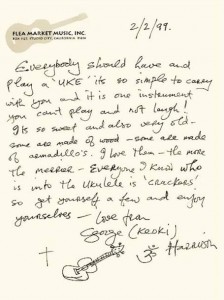 FLEA MARKET MUSIC, INC.
BOX 1127, STUDIO CITY, CALIFORNIA
2/2/99.
Everybody should have and
play a 'UKE' its so simple to carry
with you and it is one instrument
you cant play and not laugh!
Its so sweet and also very old -
some are made of wood - some are made
of armadillo's. I love them - the more
the merrier - Everyone I know who
is into the ukulele is 'crackers'
so get yourself a few and enjoy
yourselves - Love from
George (Keoki)
ॐ HARRISON